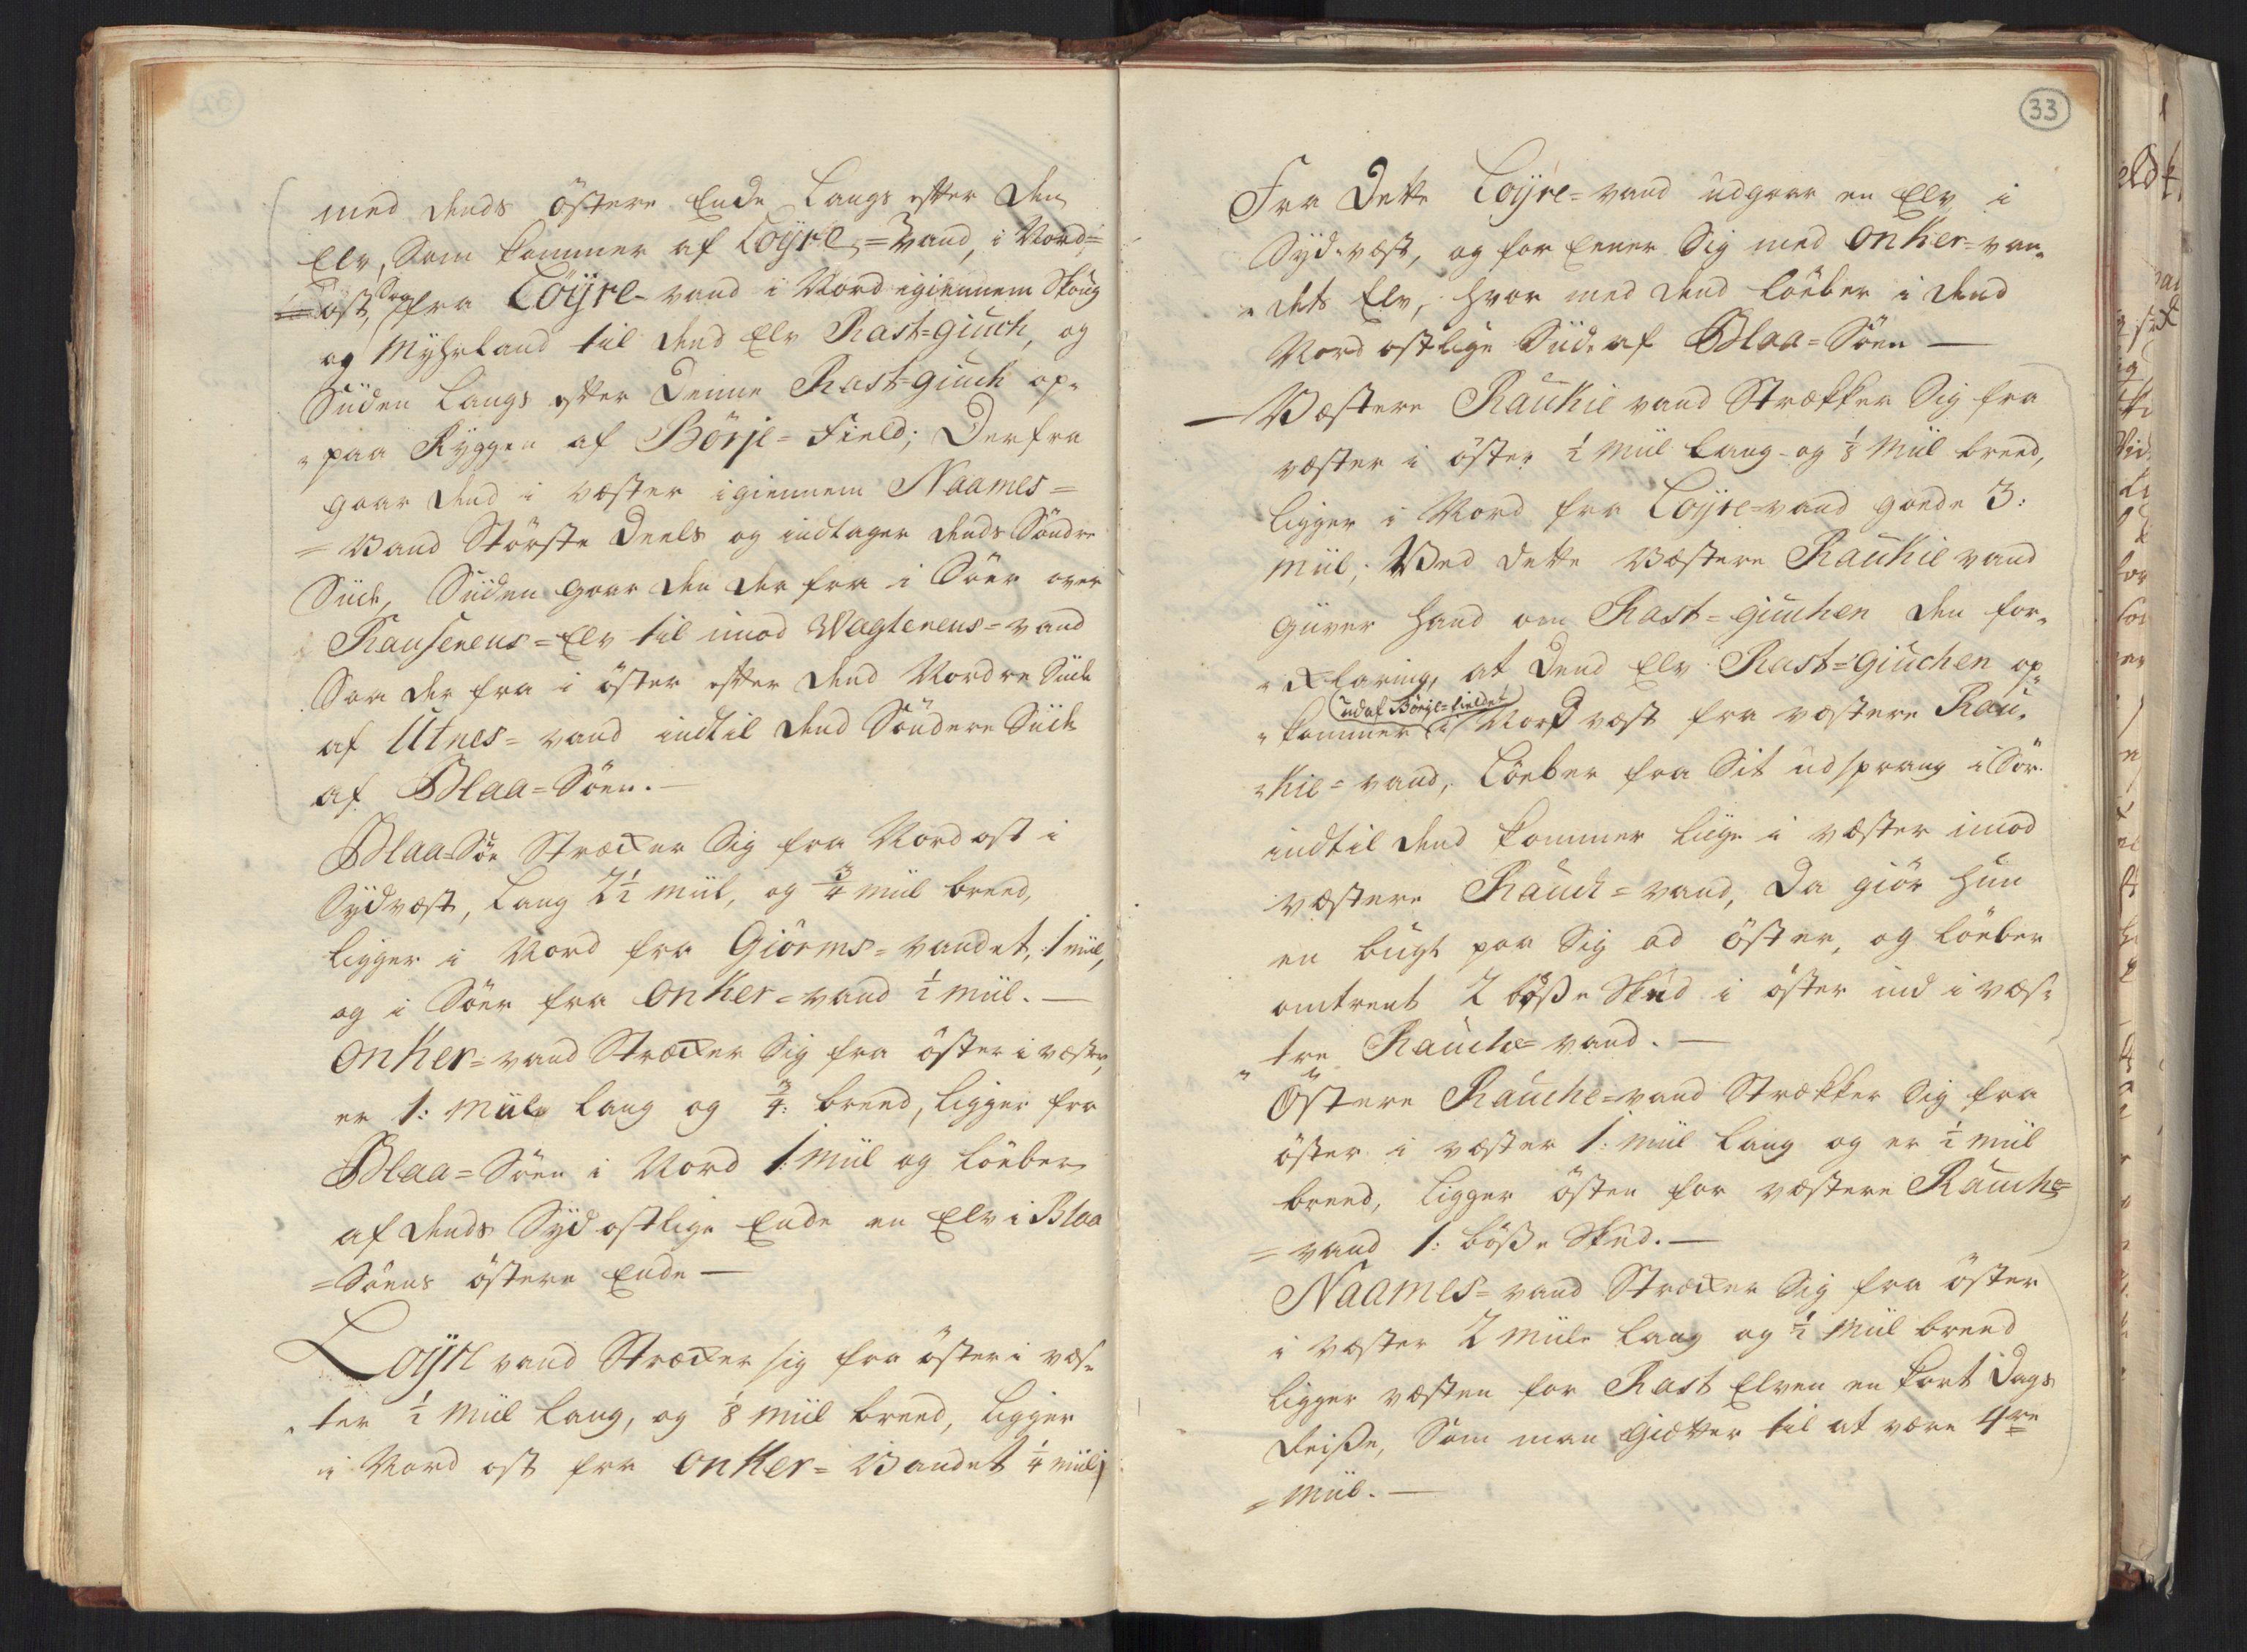 med dends östere Ende Langs efter den
Elv, Som kommer af Loÿre=Vand, i Nord=
=ost, Saa fra Löÿre-vand i Nord igiennem Skoug
og Myhrland til dend Elv Rast=giuch, og
Siiden Langs efter Denne Rast=giuch op-
-paa Ryggen af Börje=Field; Derfra
gaar dend i væster igiennem Naames=
=Vand Störste Deels og indtager dends Söndre
Siide, Siiden gaar den der fra i Söer over
Ransereus=Elv til imod Wagtereus=vand
Saa der fra i öster efter dend Nordre Siide
af Utnes=vand indtil dend Söndere Siide
af Blaa=Söen.—
Blaa=Söe Stræcker Sig fra Nordost i
Sydvæst, Lang 2½ miil, og ¾ miil breed,
ligger i Nord fra Giörms=vandet, 1 miil,
og i Söer fra Onker=vand ½ miil.—
Onker=vand Stræcker Sig fra öster i væster,
er 1: miile lang og ¾: breed, ligger fra
Blaa=Söen i Nord 1: miil og löeber
af dends Syd ostlige Ende en Elv i Blaa
=Söens östere Ende—
Loÿre vand Stræcker sig fra öster i væs-
-ter ½ miil lang, og ⅛ miil breed, ligger
i Nord ost fra Onker=Vandet ¼ miil
33
Fra Dette Loÿre=vand udgaar en Elv i
Syd-væst, og for Eener Sig med Onker=van-
-dets Elv, hvor med dend löeber i dend
Nord ostlige Siide af Blaa=Söen—
—Væstere Raukie vand Strækker Sig fra
væster i öster ½ miil lang og ⅛ miil breed,
ligger i Nord fra Loÿre=vand goede 3:
miil; Ved dette Væstere Raukie vand
giiver hand om Rast=giuchen den for-
-klaring, at Dend Elv Rast=Giuchen op-
udaf Börje=Fieldet
-kommer i Nord væst fra væstere Rau-
-kie=vand, Löeber fra Sit udsprang i Sör
indtil dend kommer liige i væster imod
væstere Rauch=vand, Da giör hun
en bugt paa Sig ad öster, og löeber
omtrent 2 böße Skud i öster ind i væs-
-tre Rauche=vand.—
Östere Rauche=vand Strækker Sig fra
öster i væster 1: miil lang og er ½ miil
breed, ligger östen for væstere Rauche=
=vand 1: böße Skud.—
Naames=vand Stræcker Sig fra öster
i væster 2 miile lang og ½ miil breed
ligger væsten for Rast Elven en kort Dags
Reiße, Som man gietter til at være 4re
=miil.—